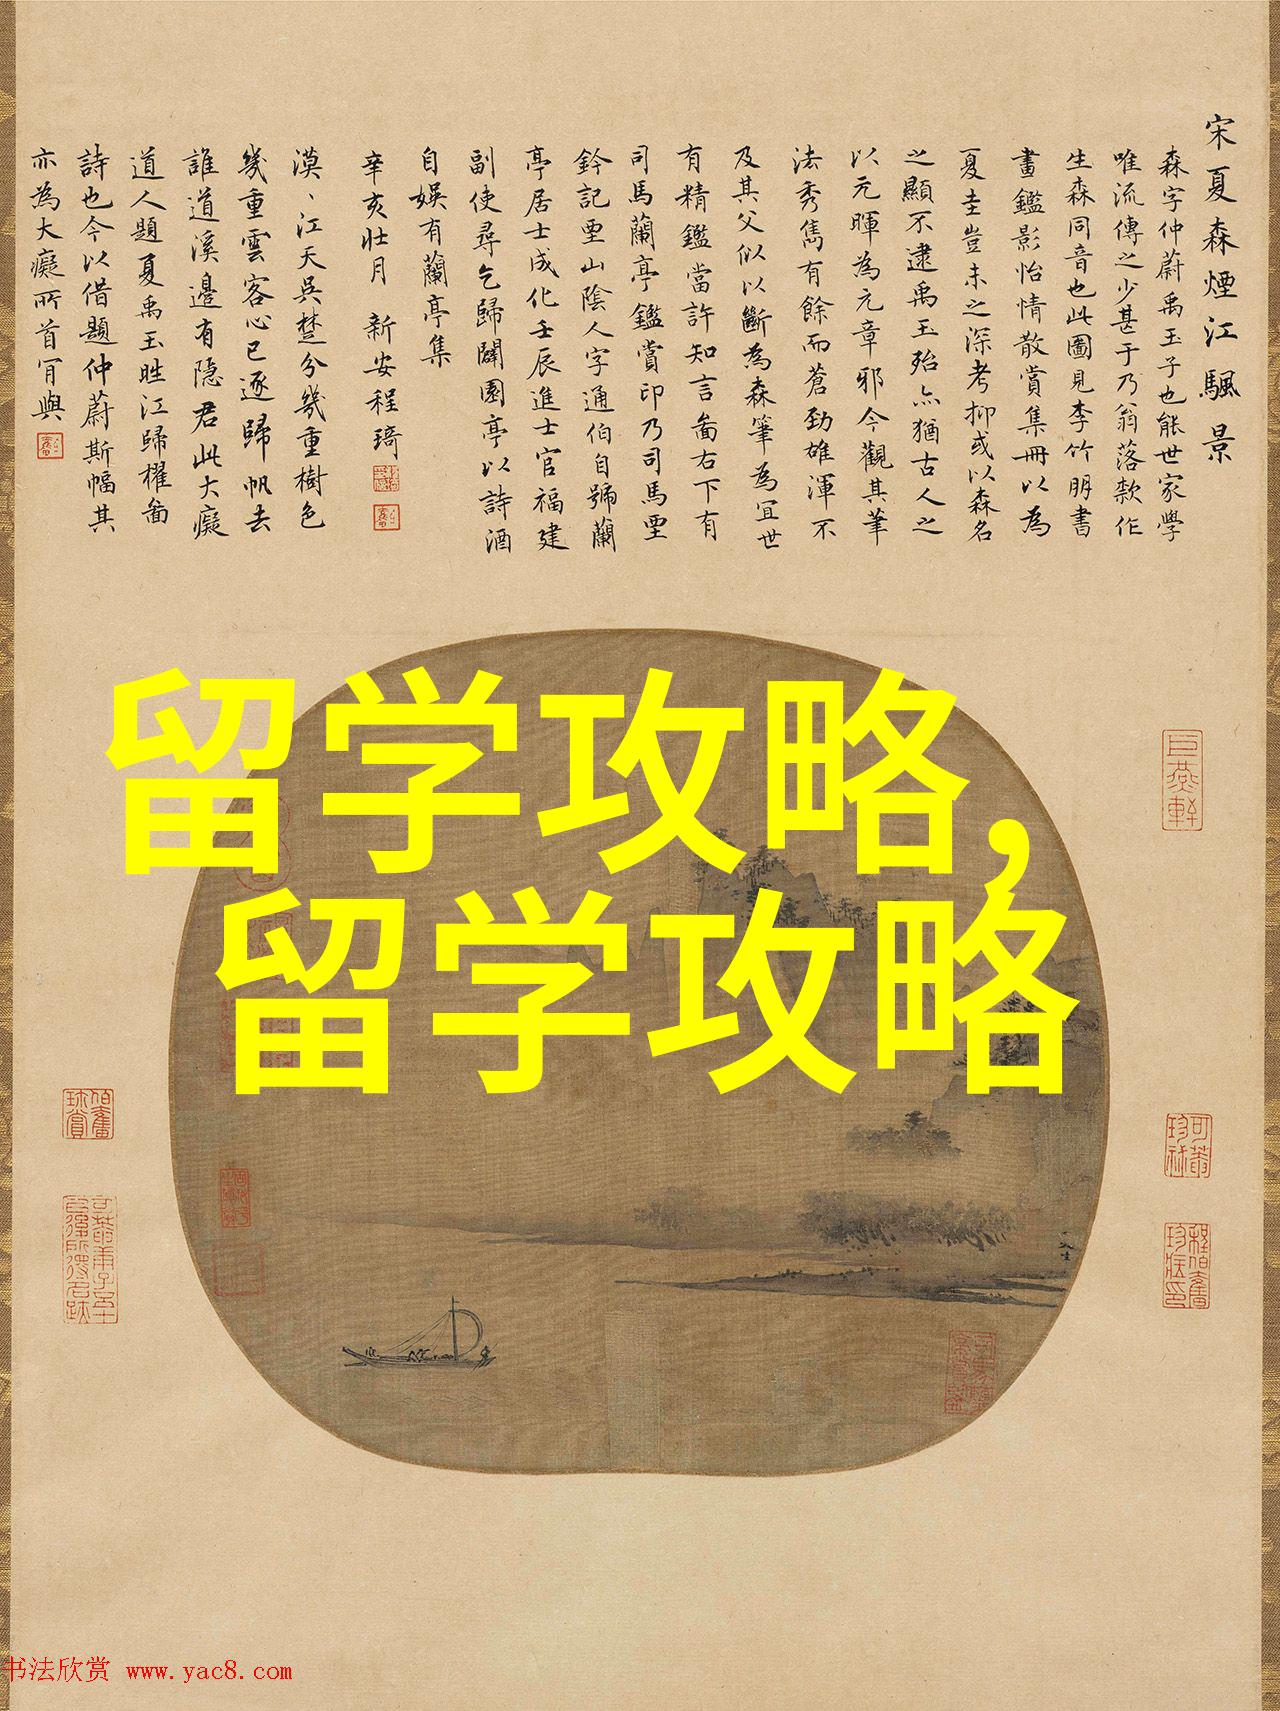 宋夏森煙江颿景
森字仲蔚禹玉子也能世家學
唯流傳之少甚于乃翁落款作
生森同音也此圖見李竹朋書
畫鑑影怡情散賞集冊以為
夏圭豈未之深考抑或以森名
之顯不逮禹玉殆亦猶古人之
以元暉為元章邪今觀其筆
法秀雋有餘而蒼勁雄渾不
及其父似以斷為森筆為宜世
有精鑑當許知言圖右下有
司馬蘭亭鑑賞印乃司馬垔
鈐記垔山陰人字通伯自號蘭
亭居士成化壬辰進士官福建
副使尋乞歸闢園亭以詩酒
自娛有蘭亭集
辛亥壯月 新安程琦
漠、江天吳楚分幾重樹色
幾重雲客心已逐歸帆去
誰道溪邊有隱君此大癡
道人題夏禹玉晴江歸櫂圖
詩也今以借題仲蔚斯幅其
亦為大癡所首肎與
留学攻略,
留学攻略
书法欣赏 www.yac8.com